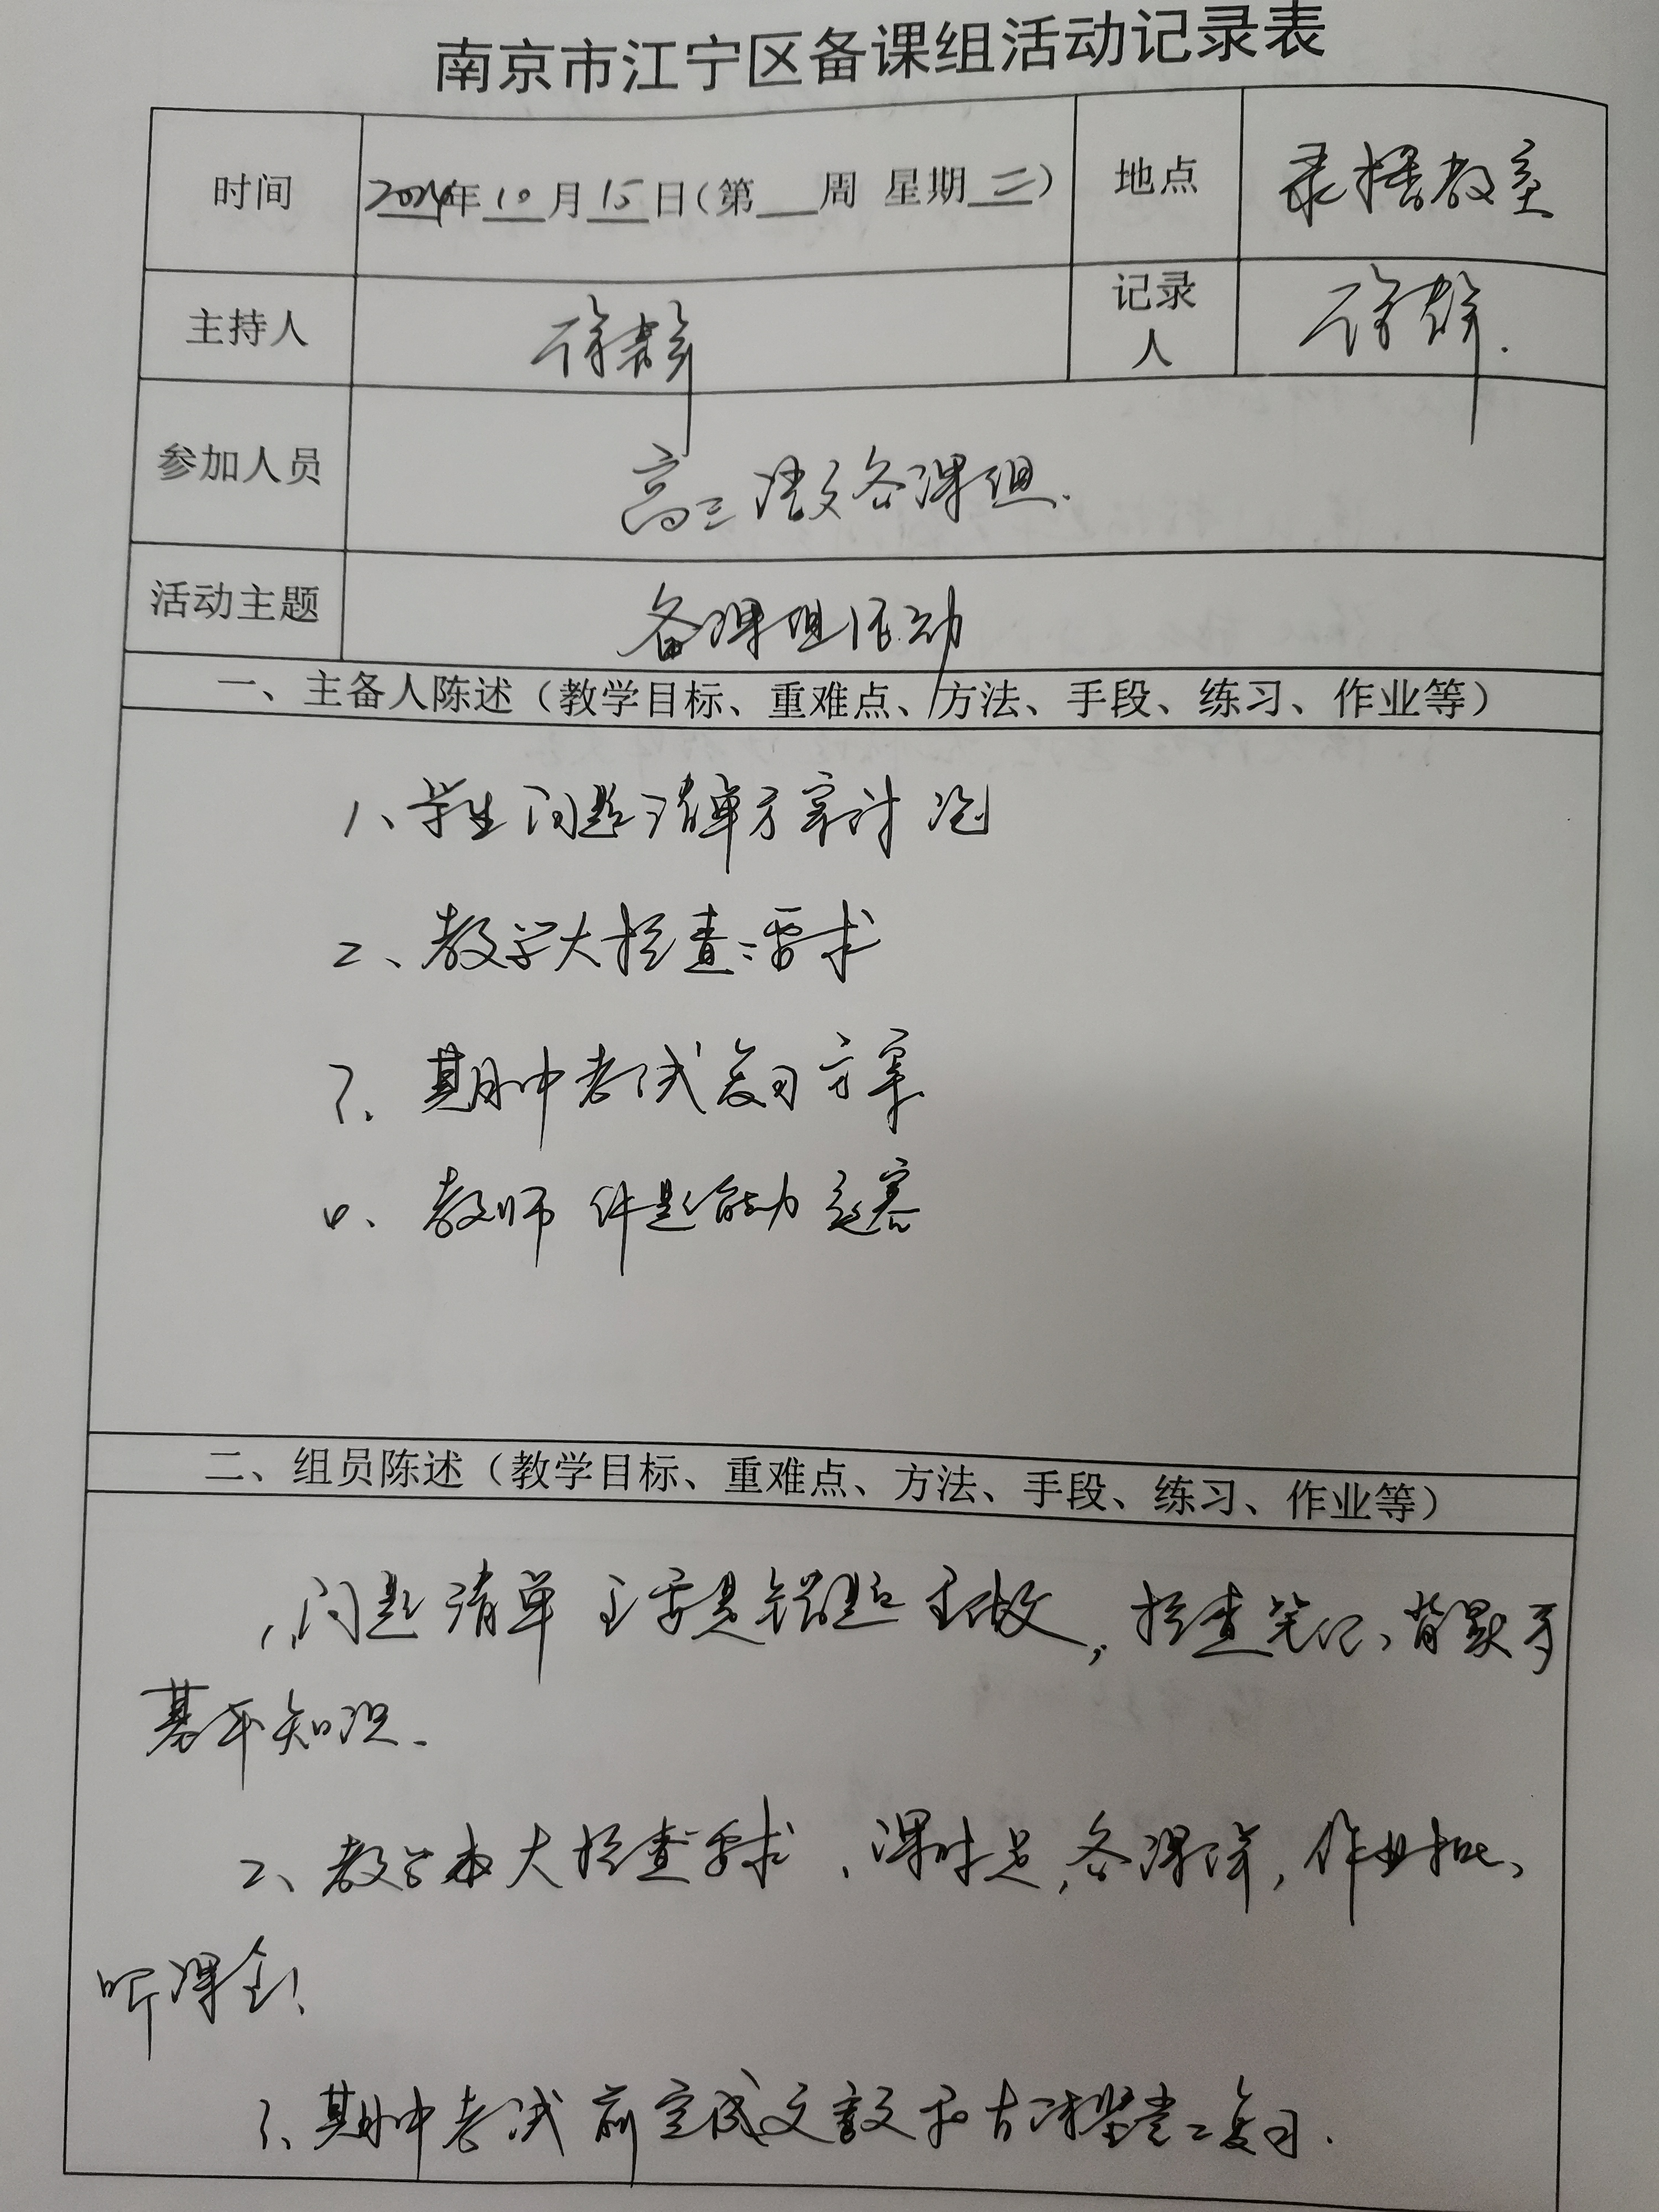 南京市江宁区备课组活动记录表
时间 年10月15日(第 周 星期三) 地点 录播教室
主持人 徐 记录人 徐
参加人员 高三语文备课组.
活动主题 备课组活动
一、主备人陈述（教学目标、重难点、方法、手段、练习、作业等）
1、学生问题清单方案讨论
2、教学大检查要求
3、期中考试复习方案
4、教师 题能力竞赛
二、组员陈述（教学目标、重难点、方法、手段、练习、作业等）
1、问题清单主要是错题 做,检查笔记、背默
基本知识.
2、教学 大检查要求、课时足,备课详,作业批、
听课全、
3、期中考试前完成文言文和古诗鉴赏复习.